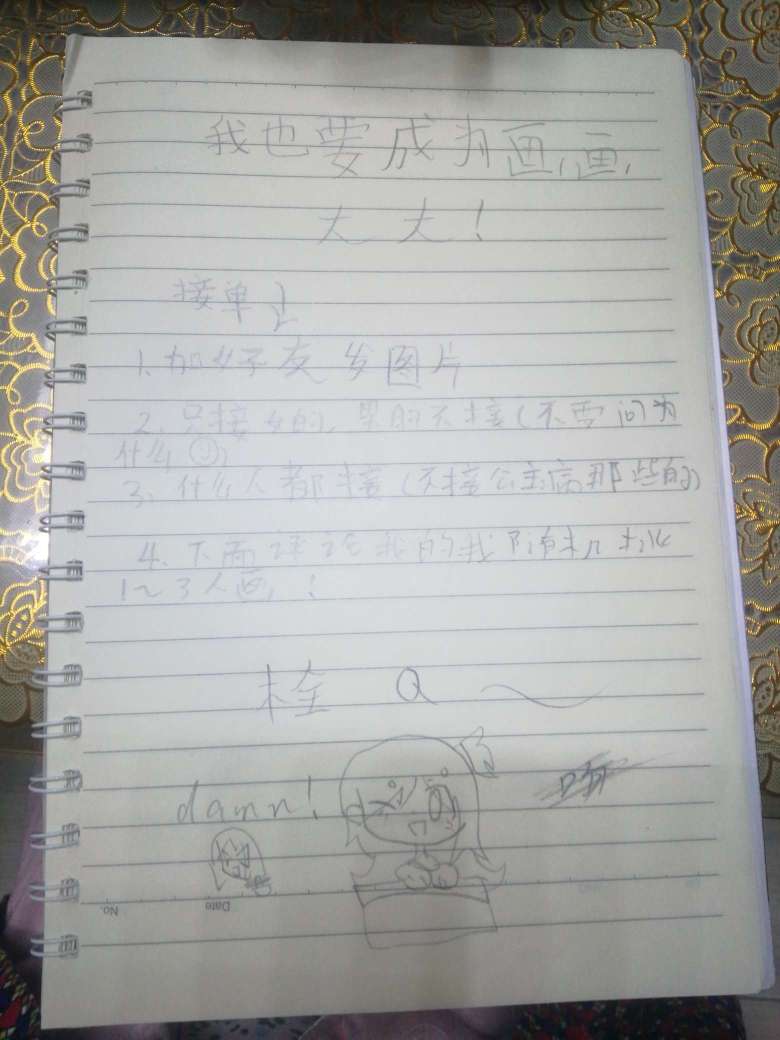 我也要成为画画
大大！
接单
1.加好友发图片
2.只接女的,男的不接(不要问为
什么
3.什么人都接(不接公主病那些的)
4.下面评论我的我随机抽
1~3人画！
栓 Q
damn!
No.
Date